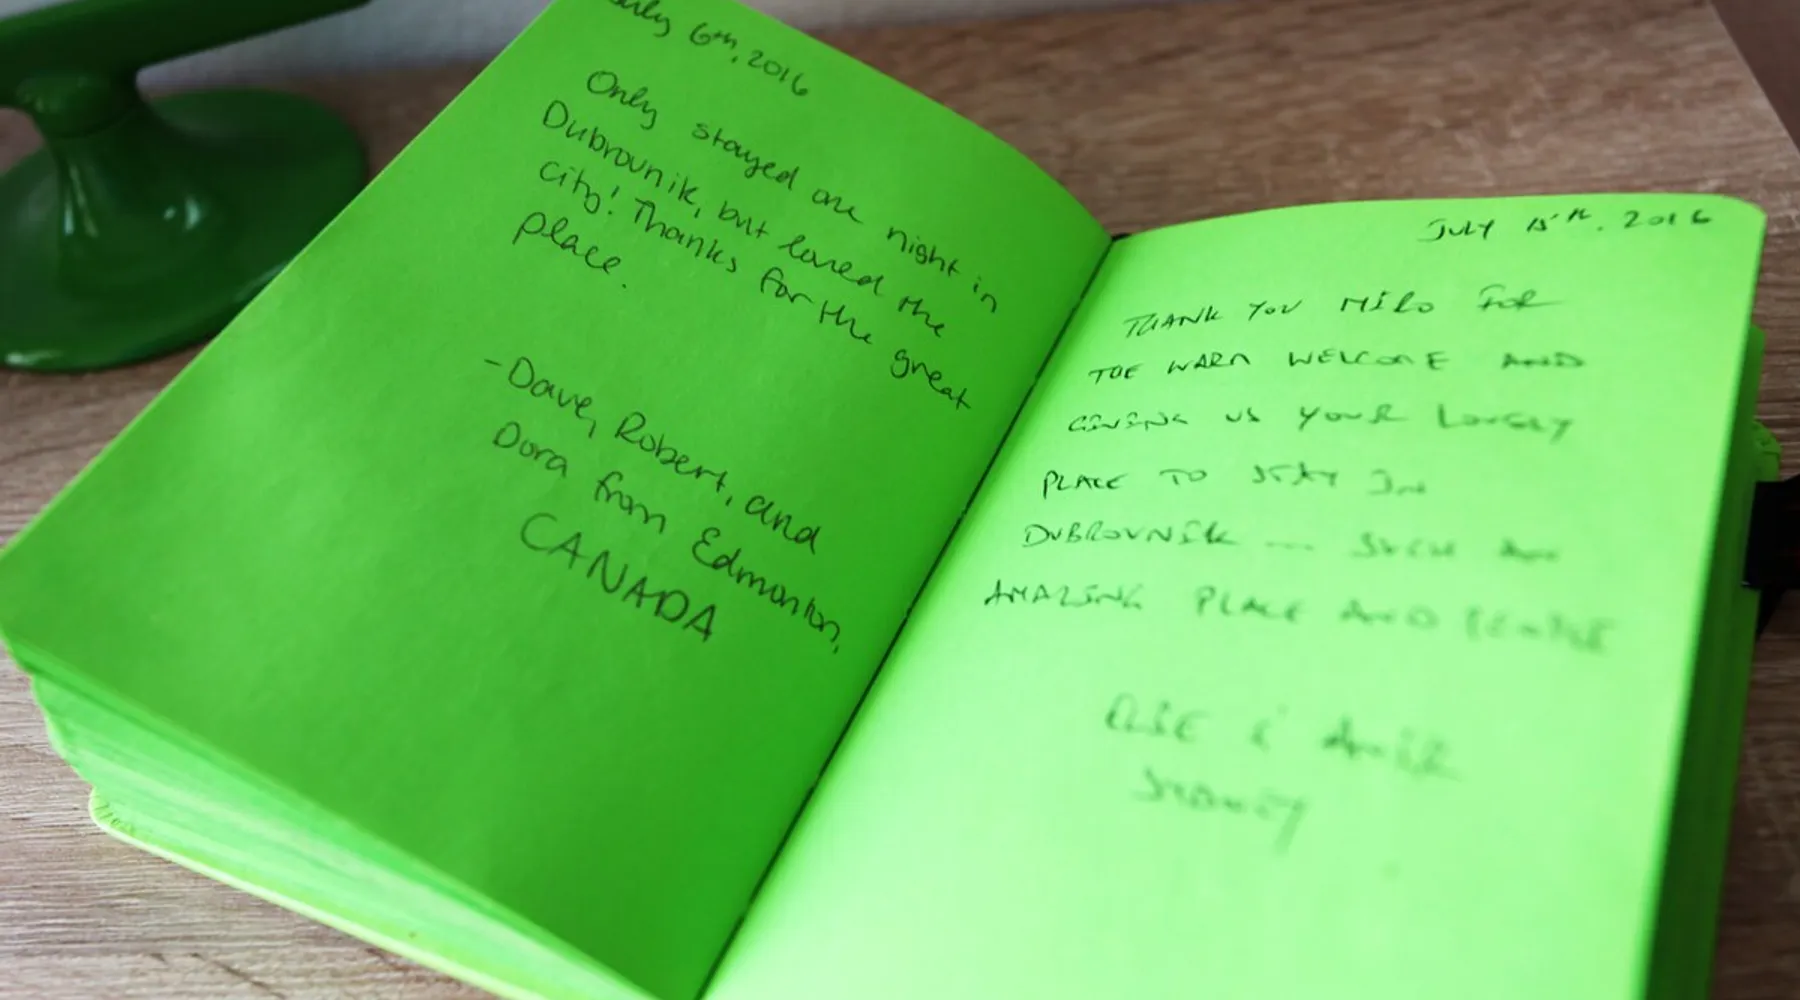 July 6th, 2016
Only stayed one night in
Dubrovnik, but loved the
city! Thanks for the great
place.
-Dave, Robert, and
Dora from Edmonton,
CANADA
JULY 15th, 2016
THANK YOU MIRO FOR
THE WARM WELCOME AND
GIVING US YOUR LOVELY
PLACE TO STAY IN
DUBROVNIK --- SUCH AN
AMAZING PLACE AND PEOPLE
& AMIR
SYDNEY